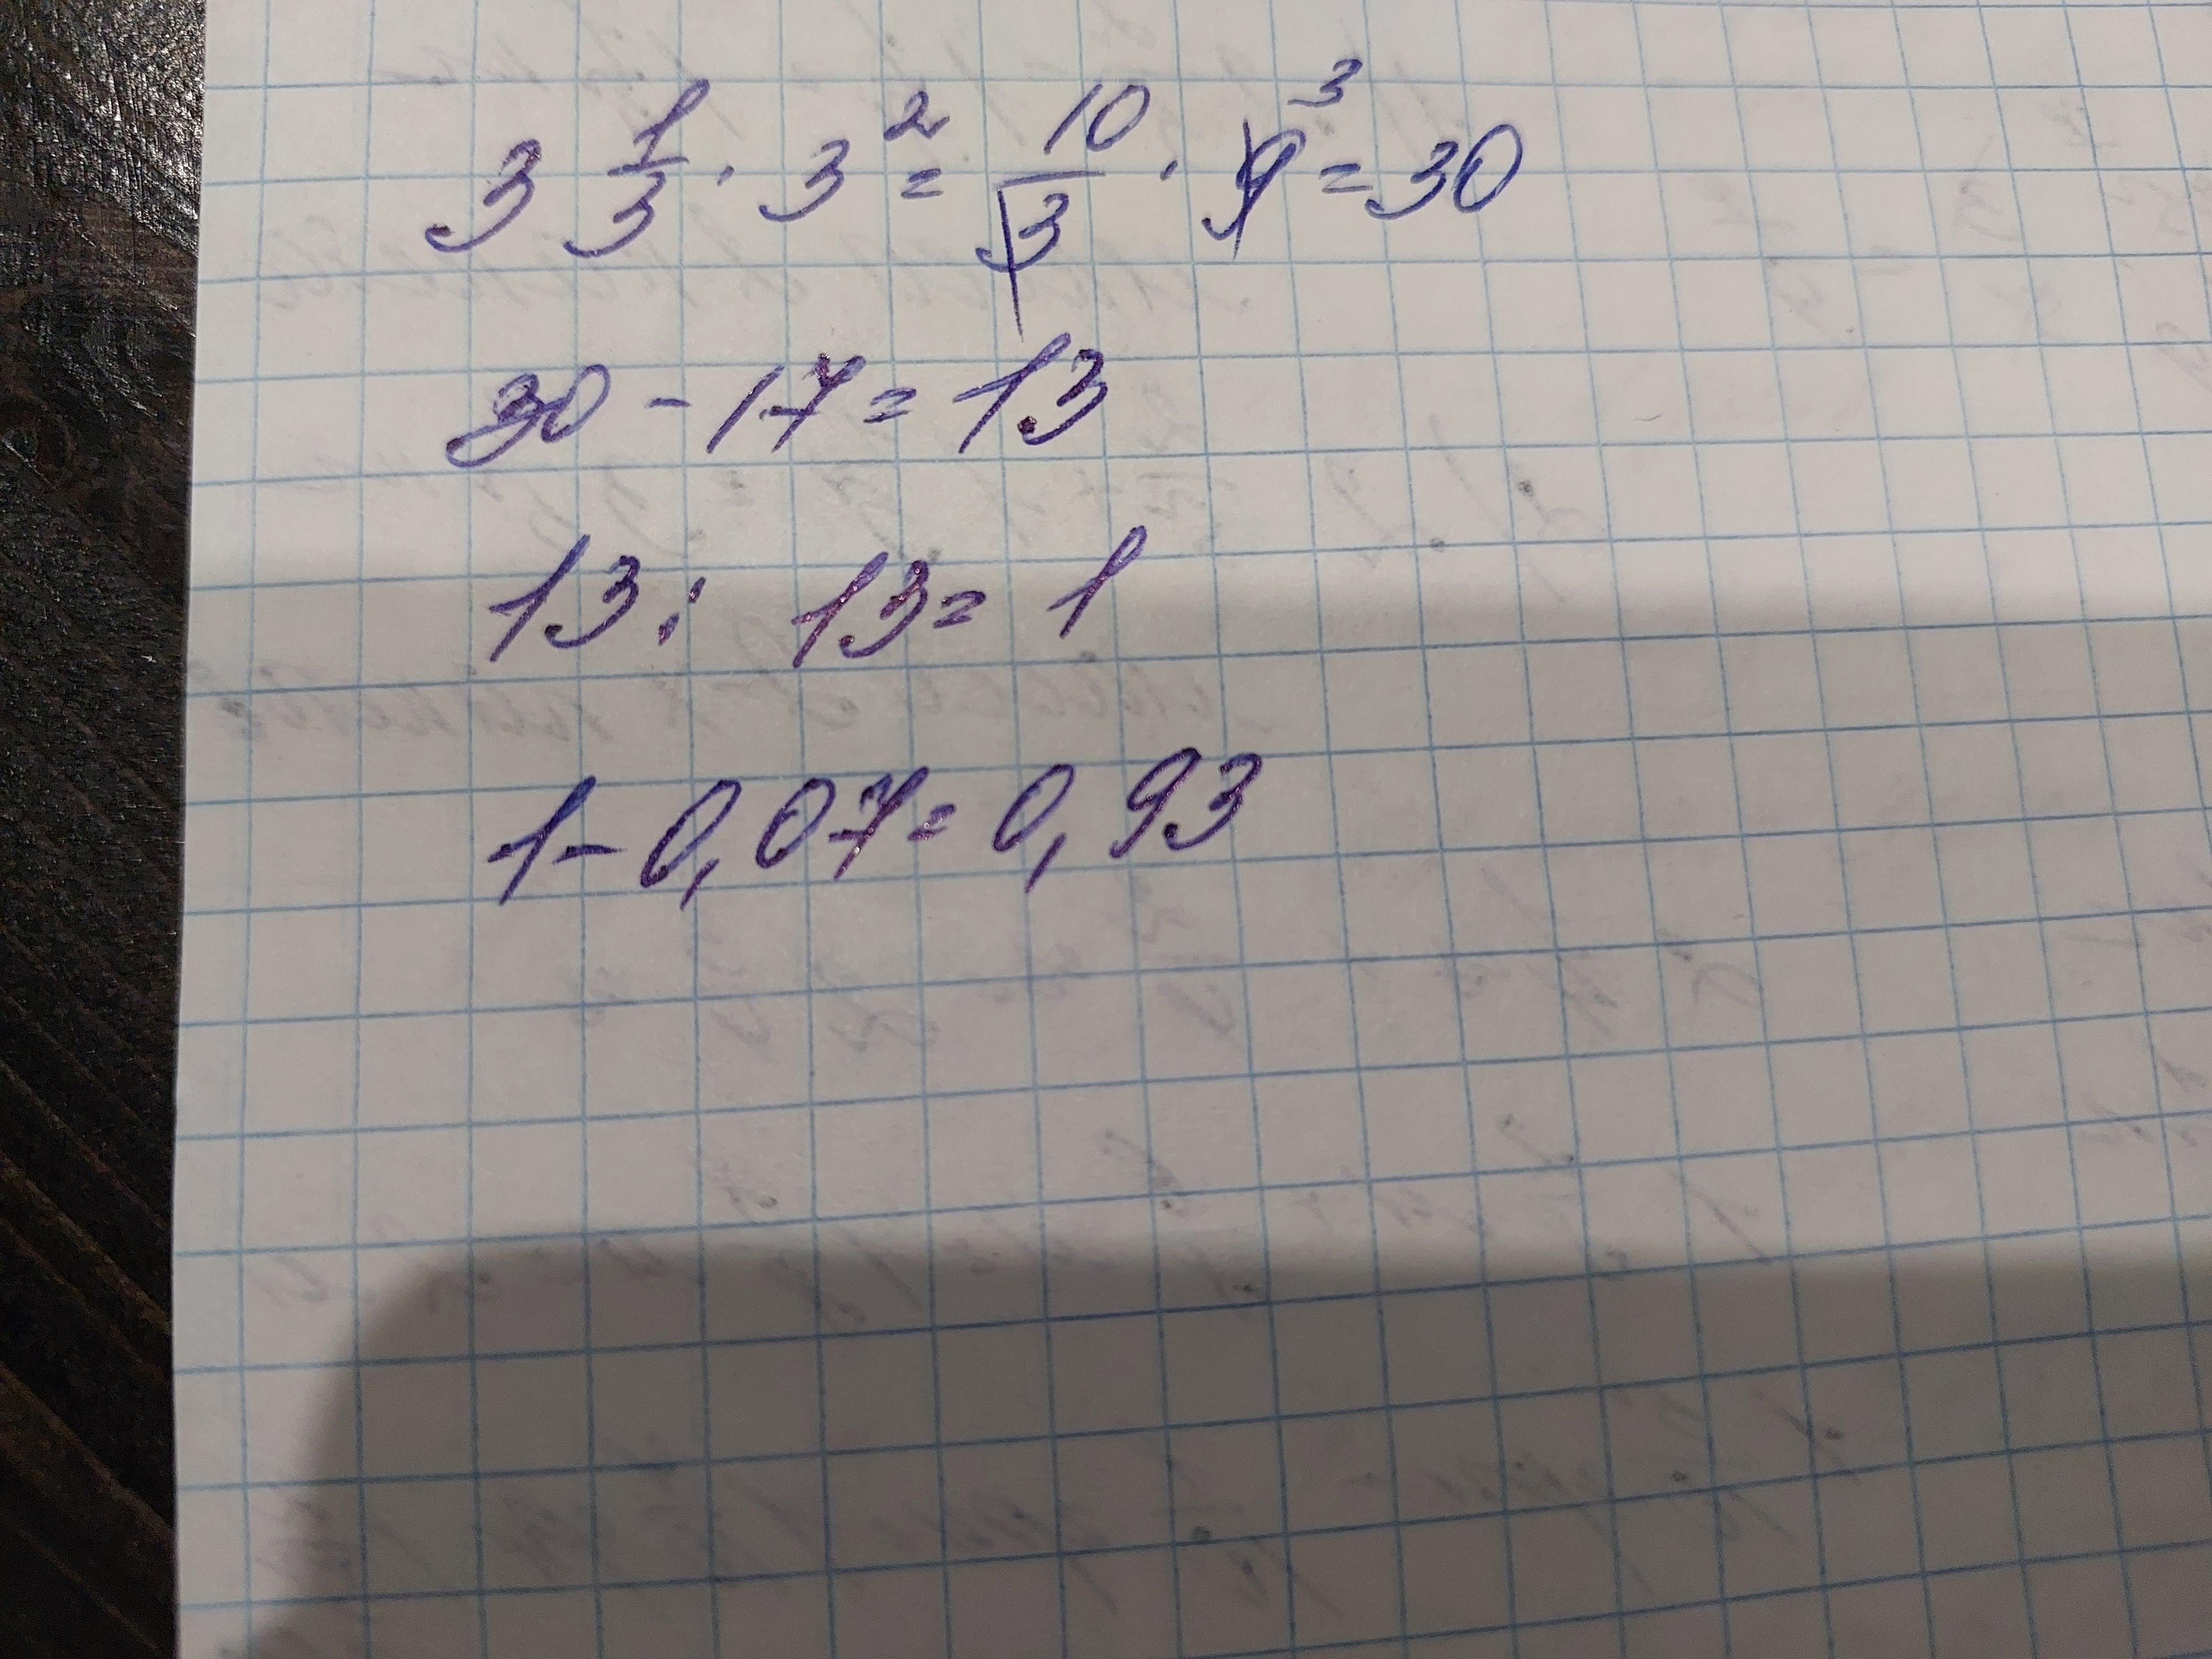 3 1/3 · 3² = 10/3 · 9 ³ = 30
30 - 17 = 13
13 : 13 = 1
1 - 0,07 = 0,93